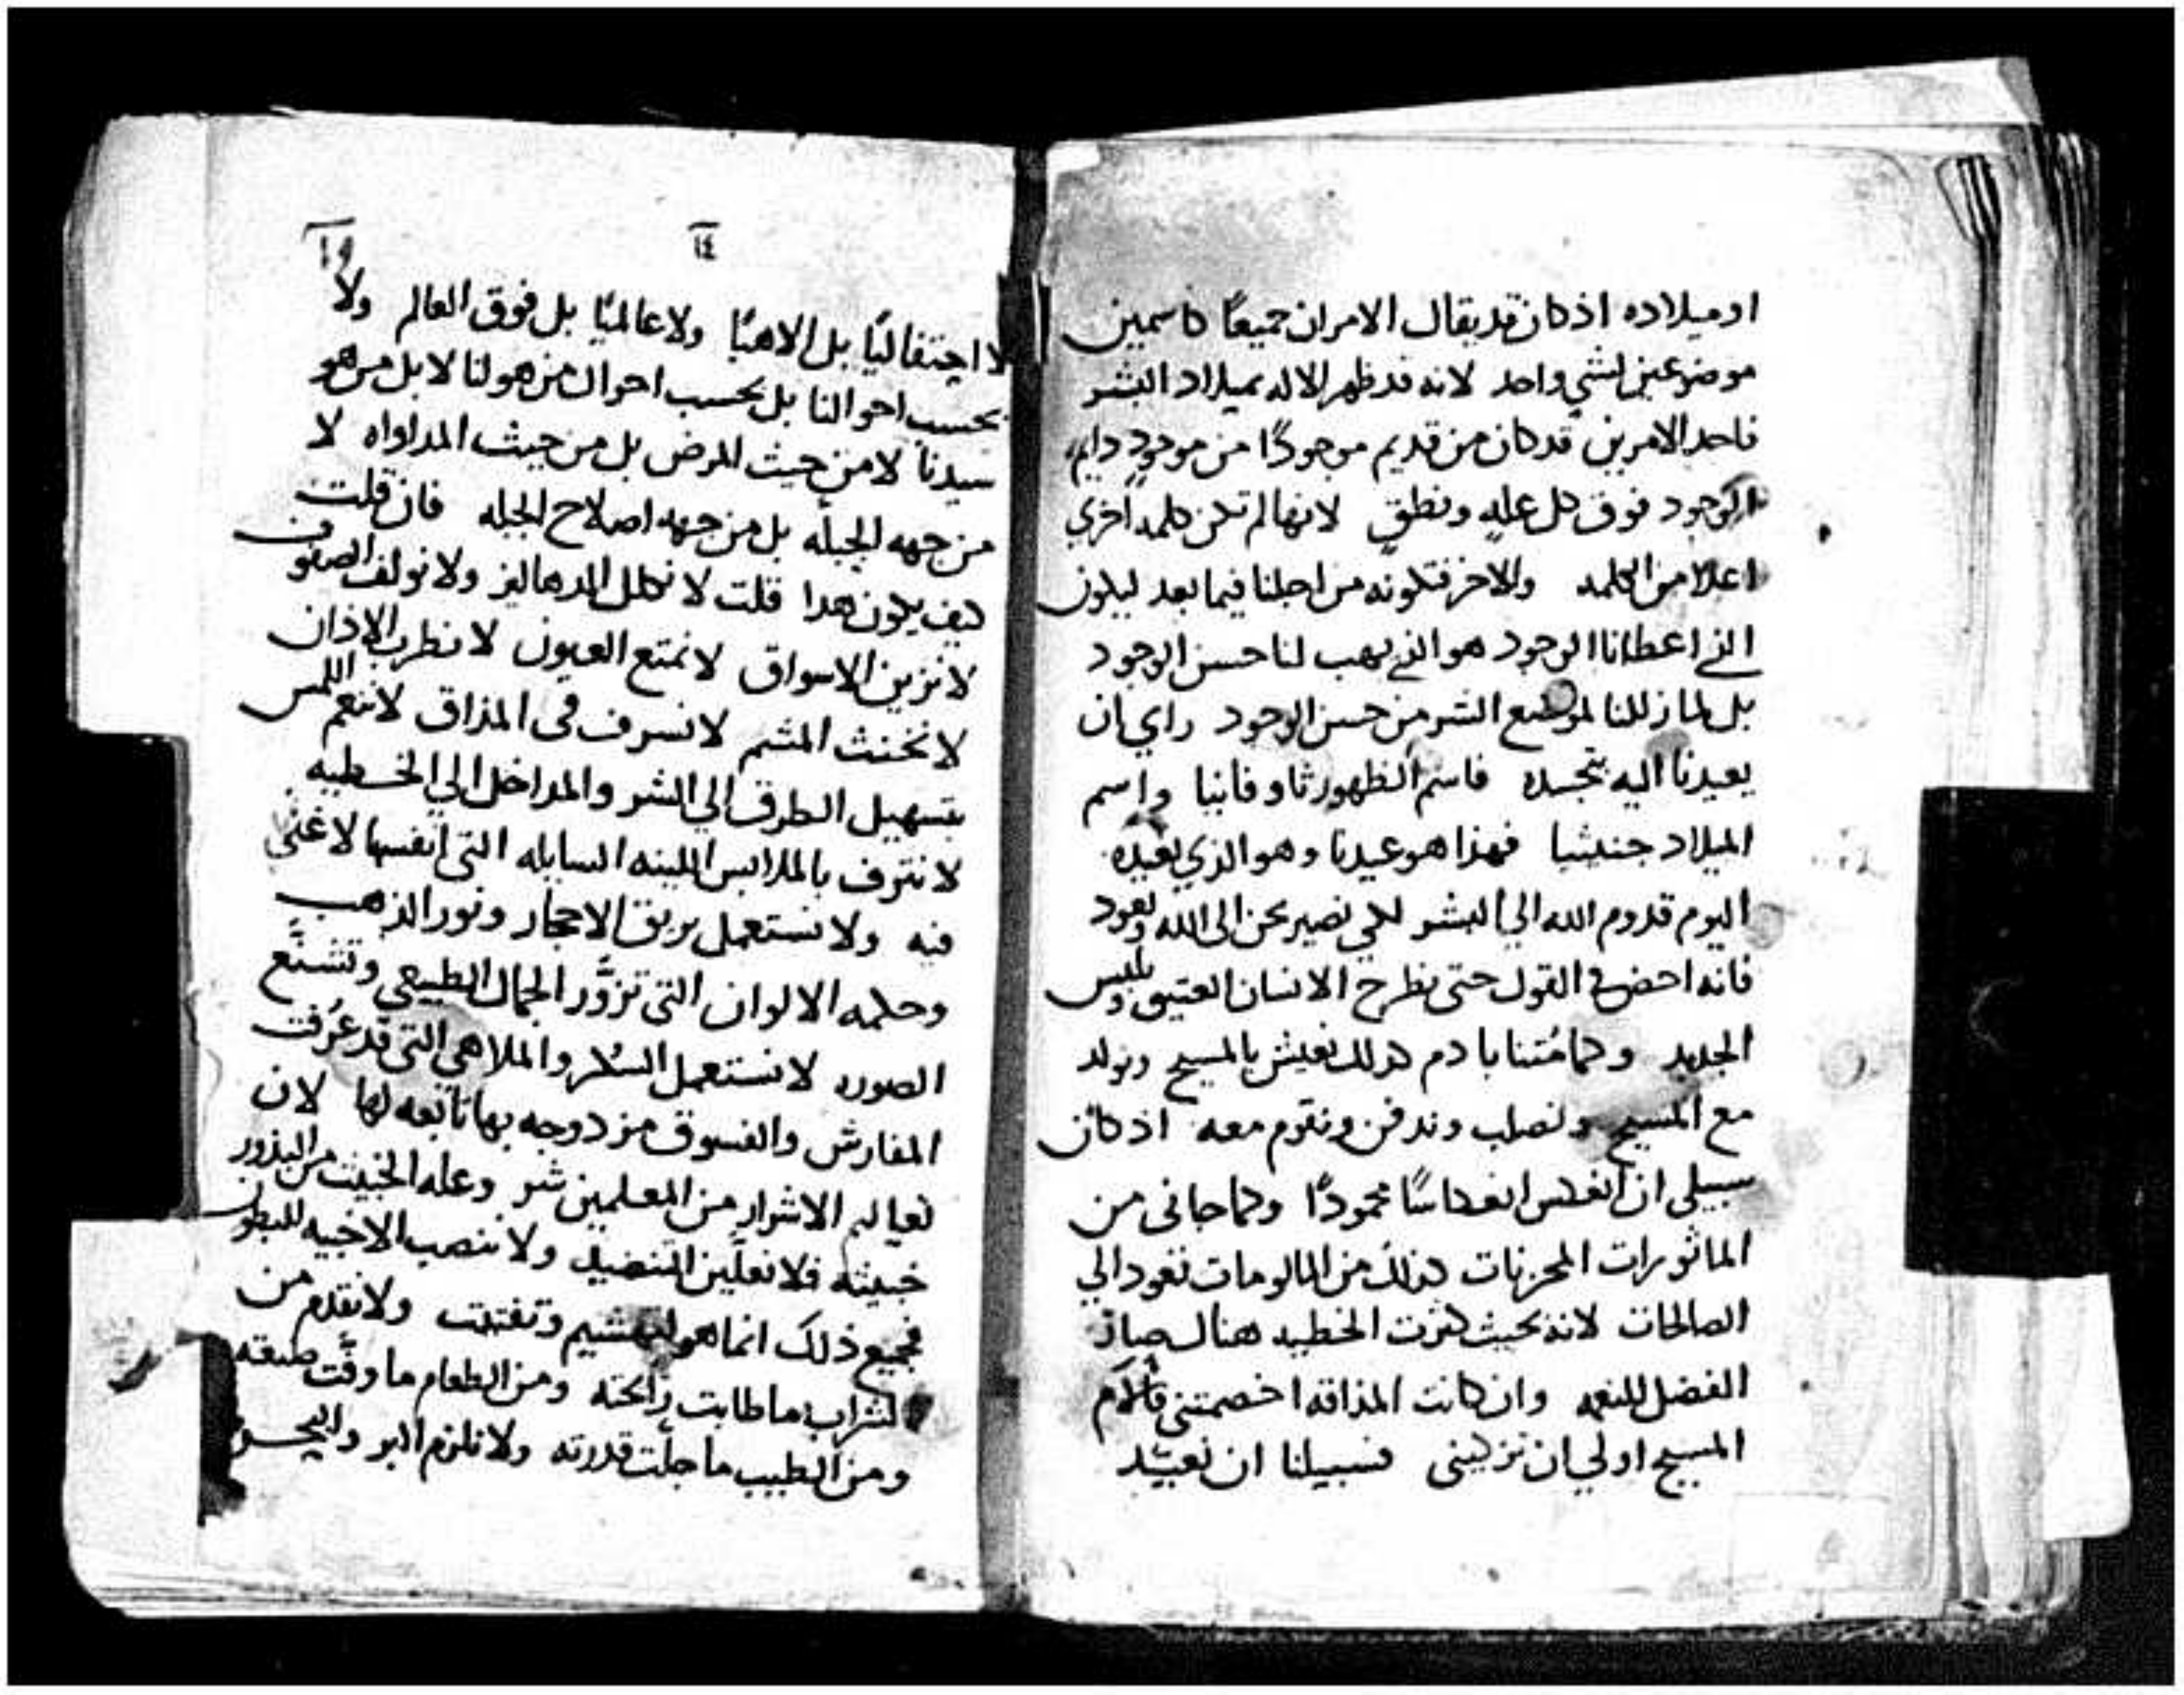 او ميلاده اذ كان قد يقال الامران جميعًا كاسمين
موضوعين لشي واحد لانه قد ظهر الاله بميلاد البشر
فاحد الامرين قد كان من قديم موجودًا من موجودٍ دايم
الوجود فوق كل علهٍ ونطقٍ لانها لم تكن كلمه اخري
اعلا من الكلمه والاخر فتكونه من اجلنا فيما بعد ليكون
الذي اعطانا الوجود هو الذي يهب لنا حسن الوجود
بل لما زللنا لموضع الشر من حسن الوجود راي ان
يعيدنا اليه بتجسده فاسم الظهور ثاوفانيا واسم
الميلاد جنثيا فهذا هو عيدنا وهو الذي نعيده
اليوم قدوم الله الي البشر لكي نصير نحن الى الله ونعود
فانه احض في القول حتى نطرح الانسان العتيق ونلبس
الجديد وكما مُتنا بادم كذلك نعيش بالمسيح ونولد
مع المسيح ونصلب وندفن ونقوم معه اذ كان
سبيلي ان انعكس انعكاسًا محمودًا وكما جاني من
الماثورات المحزنات كذلك من المالومات نعود الي
الصالحات لانه بحيث كثرت الخطيه هناك صار
الفضل للنعمه وان كانت المذاقه اخصمتني فآلام
المسيح اولي ان تزكيني فسبيلنا ان نعيّد
١٤
١٩
لا احتفاليًا بل الاهيًا ولا عالميًا بل فوق العالم ولا
بحسب احوالنا بل بحسب احوال من هو لنا لا بل من هو
سيدنا لا من حيث المرض بل من حيث المداواه لا
من جهه الجبله بل من جهه اصلاح الجبله فان قلت
كيف يكون هدا قلت لا نكلل الدهاليز ولا نولف الصفوف
لا نزين الاسواق لا نمتع العيون لا نطرب الاذان
لا نخنث المشم لا نسرف في المذاق لا ننعم اللمس
بتسهيل الطرق الي الشر والمداخل الي الخطيه
لا نترف بالملابس اللينه السايله التي انفسها لا غنى
فيه ولا نستعمل بريق الاحجار ونور الذهب
وحكمه الالوان التي تزوّر الجمال الطبيعي وتشنّع
الصوره لا نستعمل السُكر والملاهي التي قد عرُفت
المفارش والفسوق مزدوجه بها تابعه لها لان
تعاليم الاشرار من المعلمين شر وغله الخبيث من البذور
خبيثه فلا نعلّين التنضيد ولا ننصب الاخبيه للبطون
فجميع ذلك انما هو لتهشيم وتفتت ولا نقدم من
الشراب ما طابت رايحته ومن الطعام ما دقّت صنعته
ومن الطيب ما جلّت قدرته ولا نلزم البر والبحر